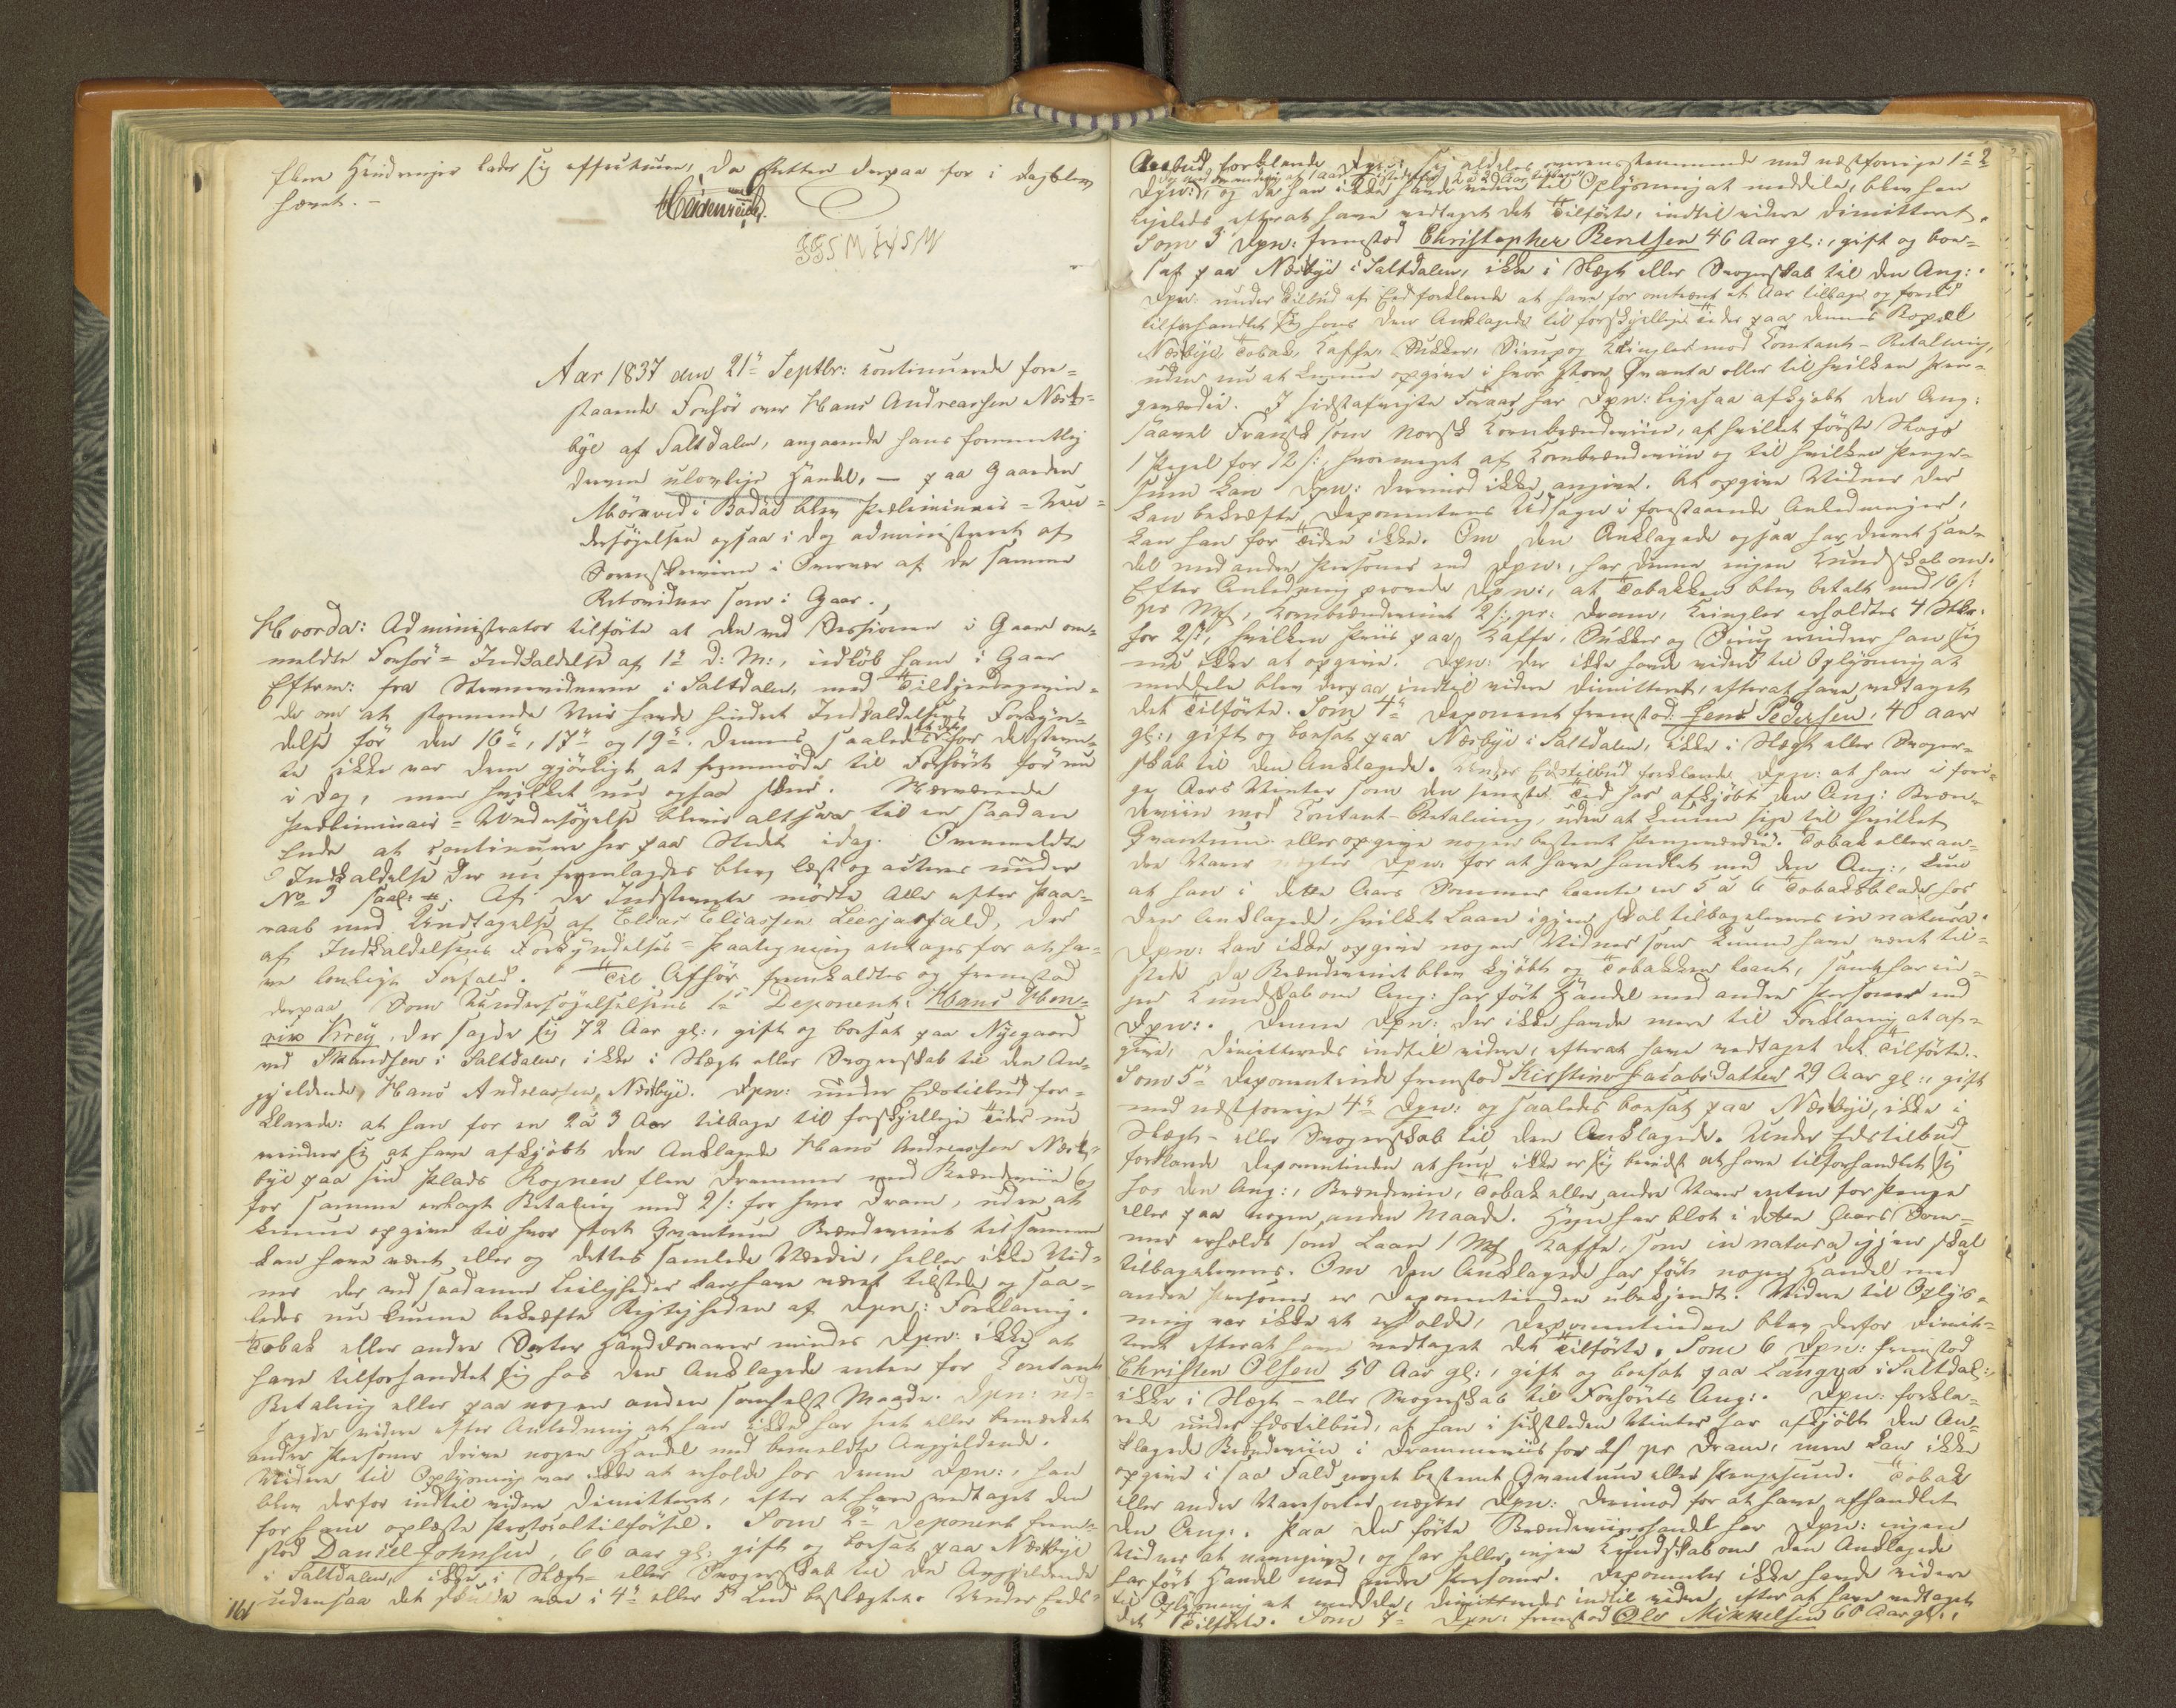 flere Hindringer lader sig effectuere, da Retten derpaa for i dag blev
hævet. –
Heidenreich.
Aar 1837 den 21de Septbr: continuerede fore-
staaende Forhør over Hans Andreassen Næst-
bye af Saltdalen, angaaende hans formentlig
drevne ulovlige Handel, – paa Gaarden
Mørkved i Bodøe blev Præliminair-Un-
dersøgelsen ogsaa i Dag administreret af
Sorenskriveren i Overvær af de samme
Retsvidner som i Gaar.,
Hvorda: Administrator tilførte at den ved Sessionen i Gaar om-
meldte Forhør-Indkaldelse af 1te d: M:, indløb ham i Gaar
Efterm: fra Stevnevidnerne i Saltdalen, med Tilkjendegivin-
de om at stormende Veir havde hindret Indkaldelsens Forkyn-
delse før den 16de, 17de og 19de. dennes saaledes for de stevn-
te ikke var dem gjørligt at fremmøde til Forhøret før nu
i Dag, men hvilket nu ogsaa skeer. Nærværende
Præliminair-Undersøgelse bliver altsaa til en saadan
Ende at continuere her paa Stedet idag. Ovenmeldte
Indkaldelse der nu fremlagdes blev læst og acteres under
No 3 saal: Af de Indstevnte mødte Alle efter Paa-
raab med Undtagelse af Elias Eliassen Leerjarfald, der
af Indkaldelsens Forkyndelses-Paategning antages for at ha-
ve lovligt Forfald. Til Afhør fremkaldtes og fremstod
derpaa Som Undersøgelselsens 1te Deponent: Hans Hen-
rix Krey, der sagde sig 72 Aar gl:, gift og bosat paa Nyegaard
ved Skandsen i Saltdalen, ikke i Slægt eller Svogerskab til den An-
gjeldende, Hans Andreassen Næstbye. Dpn: under Edstilbud for-
klarede: at han for en 2 á 3 Aar tilbage til forskjellige Tider nu
minder sig at have afkjøbt den Anklagede Hans Andreassen Næst-
bye paa sin Plads Rognen flere Drammer med Brændeviin og
for samme erlagt Betaling med 2 s: for hver Dram, uden at
kunne opgive til hvor stort Qvantum Brændevinet tilsammen
kan have været eller og dettes samlede Værdie, heller ikke Vid-
ner der ved saadanne Leiligheder kan have været tilstede og saa-
ledes nu kunne bekræfte Rigtigheden af Dpn: Forklaring.
Tobak eller andre Sorter Handelsvarer mindes Dpn: ikke at
have tilforhandlet sig hos den Anklagede enten for Contant
Betaling eller paa nogen anden somhelst Maade. Dpn: ud-
sagde videre efter Anledning at han ikke har seet eller bemærket
andre Personer drive nogen Handel med bemeldte Angjeldende.
Videre til Oplysning var ikke at erholde hos denne Dpn:, han
blev derfor indtil videre Dimitteret, efter at have vedtaget den
for ham oplæste Protocoltilførsel. Som 2de Deponent frem-
stod Daniel Johnsen, 66 aar gl: gift og bosat paa Næstbye
i Saltdalen, ikke i Slægt- eller Svogerskab til den Angjeldende
udensaa det skulde være i 4de eller 5te Led beslægtet. Under Eeds-
161
Anbud forklarede Dpn: sig aldeles overensstemmende med næstforrige 1te
Dpn:, og da han ikke havde videre til Oplysning at meddele, blev han
ligeleds efterat have vedtaget det Tilførte, indtil videre dimitteret.
Som 3de Dpn: fremstod Christopher Bentsen 46 Aar gl:, gift og bo-
sat paa Næstbye i Saltdalen, ikke i Slægt eller Svogerskab til den Ang:.
Dpn: under Tilbud af Eed forklarede at have for omtrent et Aar tilbage og forud
tilforhandlet sig hos den Anklagede til forskjellige Tider paa dennes Bopæl
Næstbye, Tobak, Kaffe, Sukker, Sirup og Kringler mod Contant-Betalning,
uden nu at kunne opgive i hvor store Qvanta eller til hvilken Pen-
geværdie. I sidstafvigte Foraar har Dpn: ligesaa afkjøbt den Ang:
saavel Fransk som Norsk Kornbrændeviin, af hvilket første Slags
1 Pægel for 12 s:, hvormeget af Kornbrændeviin og til hvilken Penge-
sum kan Dpn: derimod ikke angive. At opgive Vidner der
kan bekræfte Deponentens Udsagn i forestaaende Anledninger,
kan han for Tiden ikke. Om den Anklagede ogsaa har drevet Han-
del med andre Personer end Dpn:, har denne ingen Kundskab om.
Efter Anledning provede Dpn:, at Tobakken blev betalt med 16 s:
pr Mrk, Kornbrændevinet 2 s: pr: Dram, Kringler erholdtes 4 Stkr.
for 2 s:, hvilken Priis paa Kaffe, Sukker og Sirup minder han sig
nu ikke at opgive. Dpn: der ikke havde videre til Oplysning at
meddele blev derpaa indtil videre dimitteret, efterat have vedtaget
det Tilførte. Som 4de Deponent fremstod Jens Pedersen, 40 aar
gl:, gift og bosat paa Næstbye i Saltdalen, ikke i Slægt eller Svoger-
skab til den Anklagede. Under Edstilbud forklarede Dpn: at han i forri-
ge Aars Vinter som den seneste Tid har afkjøbt den Ang: Bræn-
deviin mod Contant-Betalning, uden at kunne sige til hvilket
Qvantum eller opgive nogen bestemt Pengeværdie. Tobak eller an-
dre Varer nægter Dpn: for at have handlet med den Ang:, kun
at han i dette Aars Sommer laante en 5 á 6 Tobaksblade hos
den Anklagede, hvilket Laan igjen skal tilbageleveres in natura.
Dpn: kan ikke opgive nogen Vidner som kunne have været til-
stede da Brændevinet blev kjøbt og Tobakken laant, samt har in-
gen Kundskab om Ang: har ført Handel med andre Personer end
Dpn:. Denne Dpn: der ikke havde mere til Forklaring at af-
give, dimitteredes indtil videre, efterat have vedtaget det Tilførte.
Som 5te Deponentinde fremstod Kirstine Jacobsdatter 29 Aar gl:, gift
med næstforrige 4de Dpn: og saaledes bosat paa Næstbye, ikke i
Slægt- eller Svogerskab til den Anklagede. Under Edstilbud
forklarede Deponentinden at hun ikke er sig bevidst at have tilforhandlet sig
hos den Ang:, Brændeviin, Tobak eller andre Varer enten for Penge
eller paa nogen anden Maade. Hun har blot i dette Aars Som-
mer erholdt som Laan 1 Mrk Kaffe, som in natura igjen skal
tilbageleveres. Om den Anklagede har ført nogen Handel med
andre Personer er Deponentinden ubekjendt. Videre til Oplys-
ning var ikke at erholde, Deponentinden blev derfor Dimit-
teret efterat have vedtaget det Tilførte. Som 6 Dpn: fremstod
Christen Olsen 50 Aar gl:, gift og bosat paa Langnæs i Saltdal:,
ikke i Slægt- eller Svogerskab til Forhørets Ang:. Dpn: forkla-
rede under Edstilbud, at han i sidstleden Vinter har afkjøbt den An-
klagede Brændeviin i Drammeviis for 2 s pr Dram, men kan ikke
opgive i saa Fald noget bestemt Qvantum eller Pengesum. Tobak
eller andre Varesorter nægter Dpn: derimod for at have afhandlet
den Ang:. Paa den førte Brændeviinshandel har Dpn: ingen
Vidner at navngive, og har heller ingen Kundskab om den Anklagede
har ført Handel med andre Personer. Deponenten ikke havde videre
til Oplysning at meddele, dimitteredes indtil videre, efter at have vedtaget
det Tilførte. Som 7de Dpn: fremstod Ole Mikkelsen 60 Aar gl:,